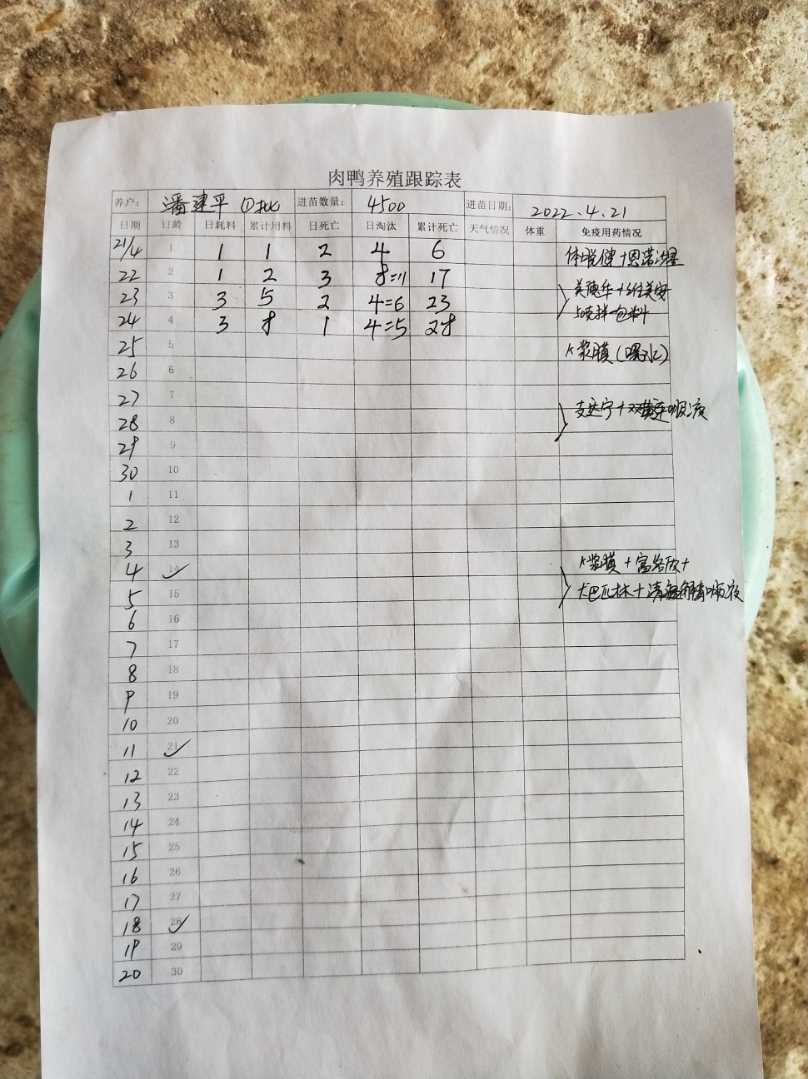 肉鸭养殖跟踪表
养户: 潘建平 ①批 进苗数量: 4500 进苗日期: 2022.4.21
日期 日龄 日耗料 累计用料 日死亡 日淘汰 累计死亡 天气情况 体重 免疫用药情况
21/4 1 1 1 2 4 6
22 2 1 2 3 8=11 17
23 3 3 5 2 4=6 23
24 4 3 8 1 4=5 28
25 5 浆膜
26 6
27 7
28 8
29 9
30 10
1 11
2 12
3 13
4 14 ✓ 浆膜+
5 15
6 16
7 17
8 18
9 19
10 20
11 21 ✓
12 22
13 23
14 24
15 25
16 26
17 27
18 28 ✓
19 29
20 30